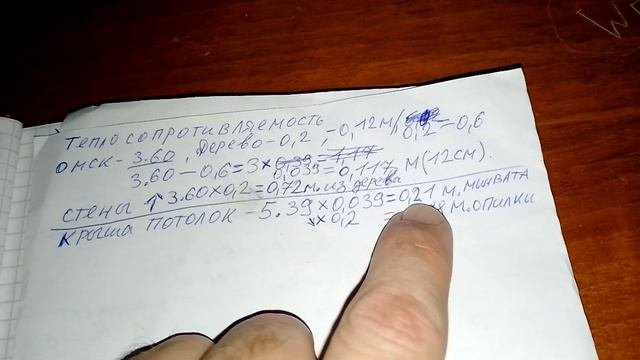 Теплосопротивляемость
Омск - 3.60, Дерево - 0,2, - 0,12м/0,2 = 0,6
3.60 - 0,6 = 3 × 0,039 = 0,117 м (12см).
Стены ↑ 3.60 × 0,2 = 0,72 м. из дерева
Крыша потолок - 5.39 × 0,039 = 0,21 м. минвата
× 0,2 = м. опилки